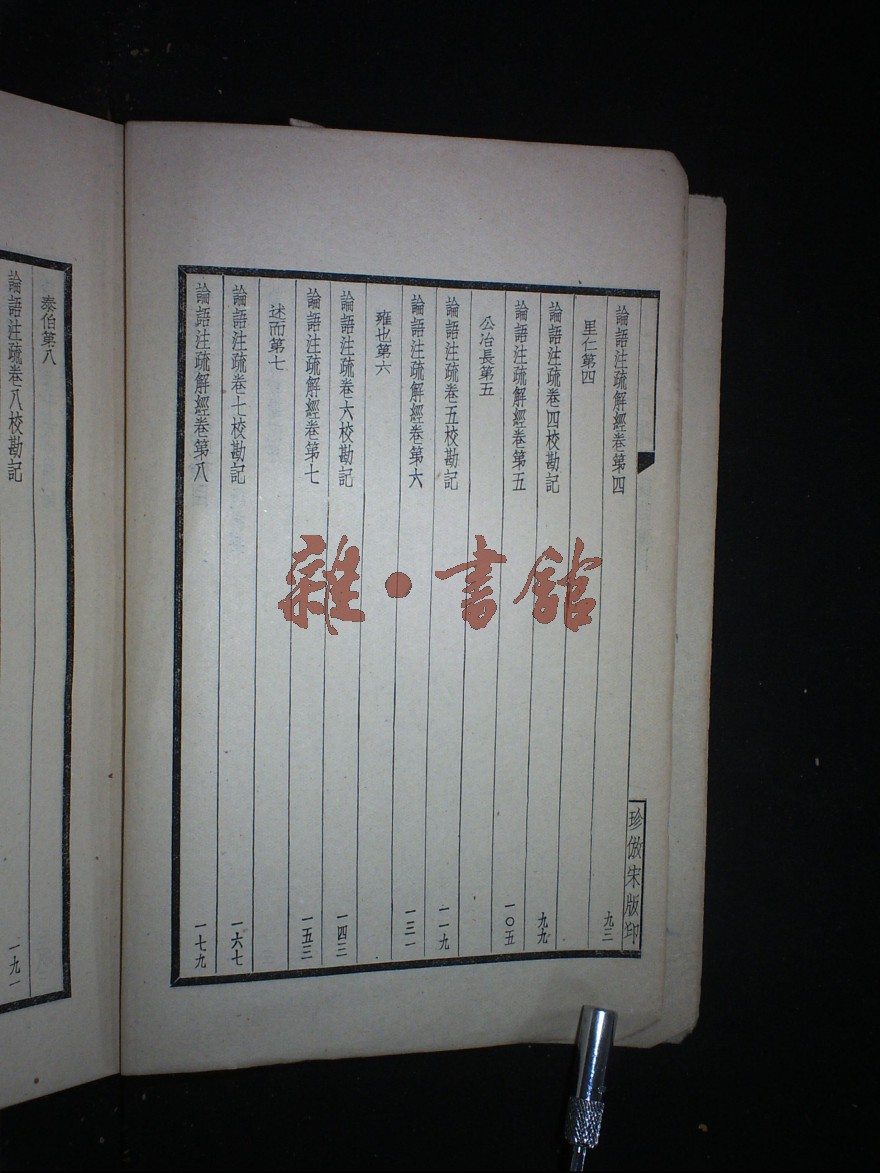 論語注疏解經卷第四 九三
里仁第四
論語注疏卷四校勘記 九九
論語注疏解經卷第五 一〇五
公冶長第五
論語注疏卷五校勘記 一一九
論語注疏解經卷第六 一三一
雍也第六
論語注疏卷六校勘記 一四三
論語注疏解經卷第七 一五三
述而第七
論語注疏卷七校勘記 一六七
論語注疏解經卷第八 一七九
珍倣宋版印
泰伯第八
論語注疏卷八校勘記 一九一
雜·書館